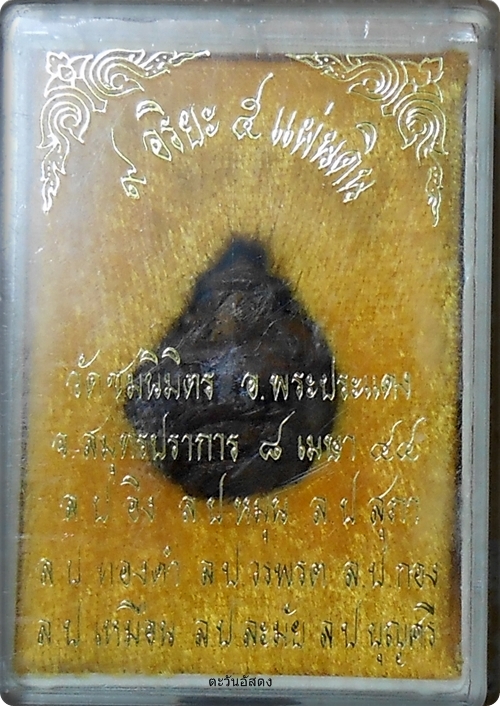 ๙ อริยะ ๕ แผ่นดิน
วัดชมนิมิตร อ.พระประแดง
จ.สมุทรปราการ ๘ เมษา ๔๔
ล.ป.อิง ล.ป.หมุน ล.ป.สุภา
ล.ป.ทองดำ ล.ป.วรพรต ล.ป.กอง
ล.ป.เหมือน ล.ป.ละมัย ล.ป.บุญศรี
ตะวันอัสดง